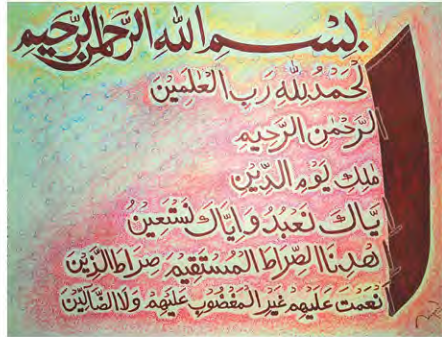 بِسْمِ اللهِ الرَّحْمٰنِ الرَّحِيْمِ
الْحَمْدُ لِلّٰهِ رَبِّ الْعٰلَمِيْنَ
الرَّحْمٰنِ الرَّحِيْمِ
مٰلِكِ يَوْمِ الدِّيْنِ
اِيَّاكَ نَعْبُدُ وَاِيَّاكَ نَسْتَعِيْنُ
اِهْدِنَا الصِّرَاطَ الْمُسْتَقِيْمَ صِرَاطَ الَّذِيْنَ
اَنْعَمْتَ عَلَيْهِمْ غَيْرِ الْمَغْضُوْبِ عَلَيْهِمْ وَلَا الضَّآلِّيْنَ